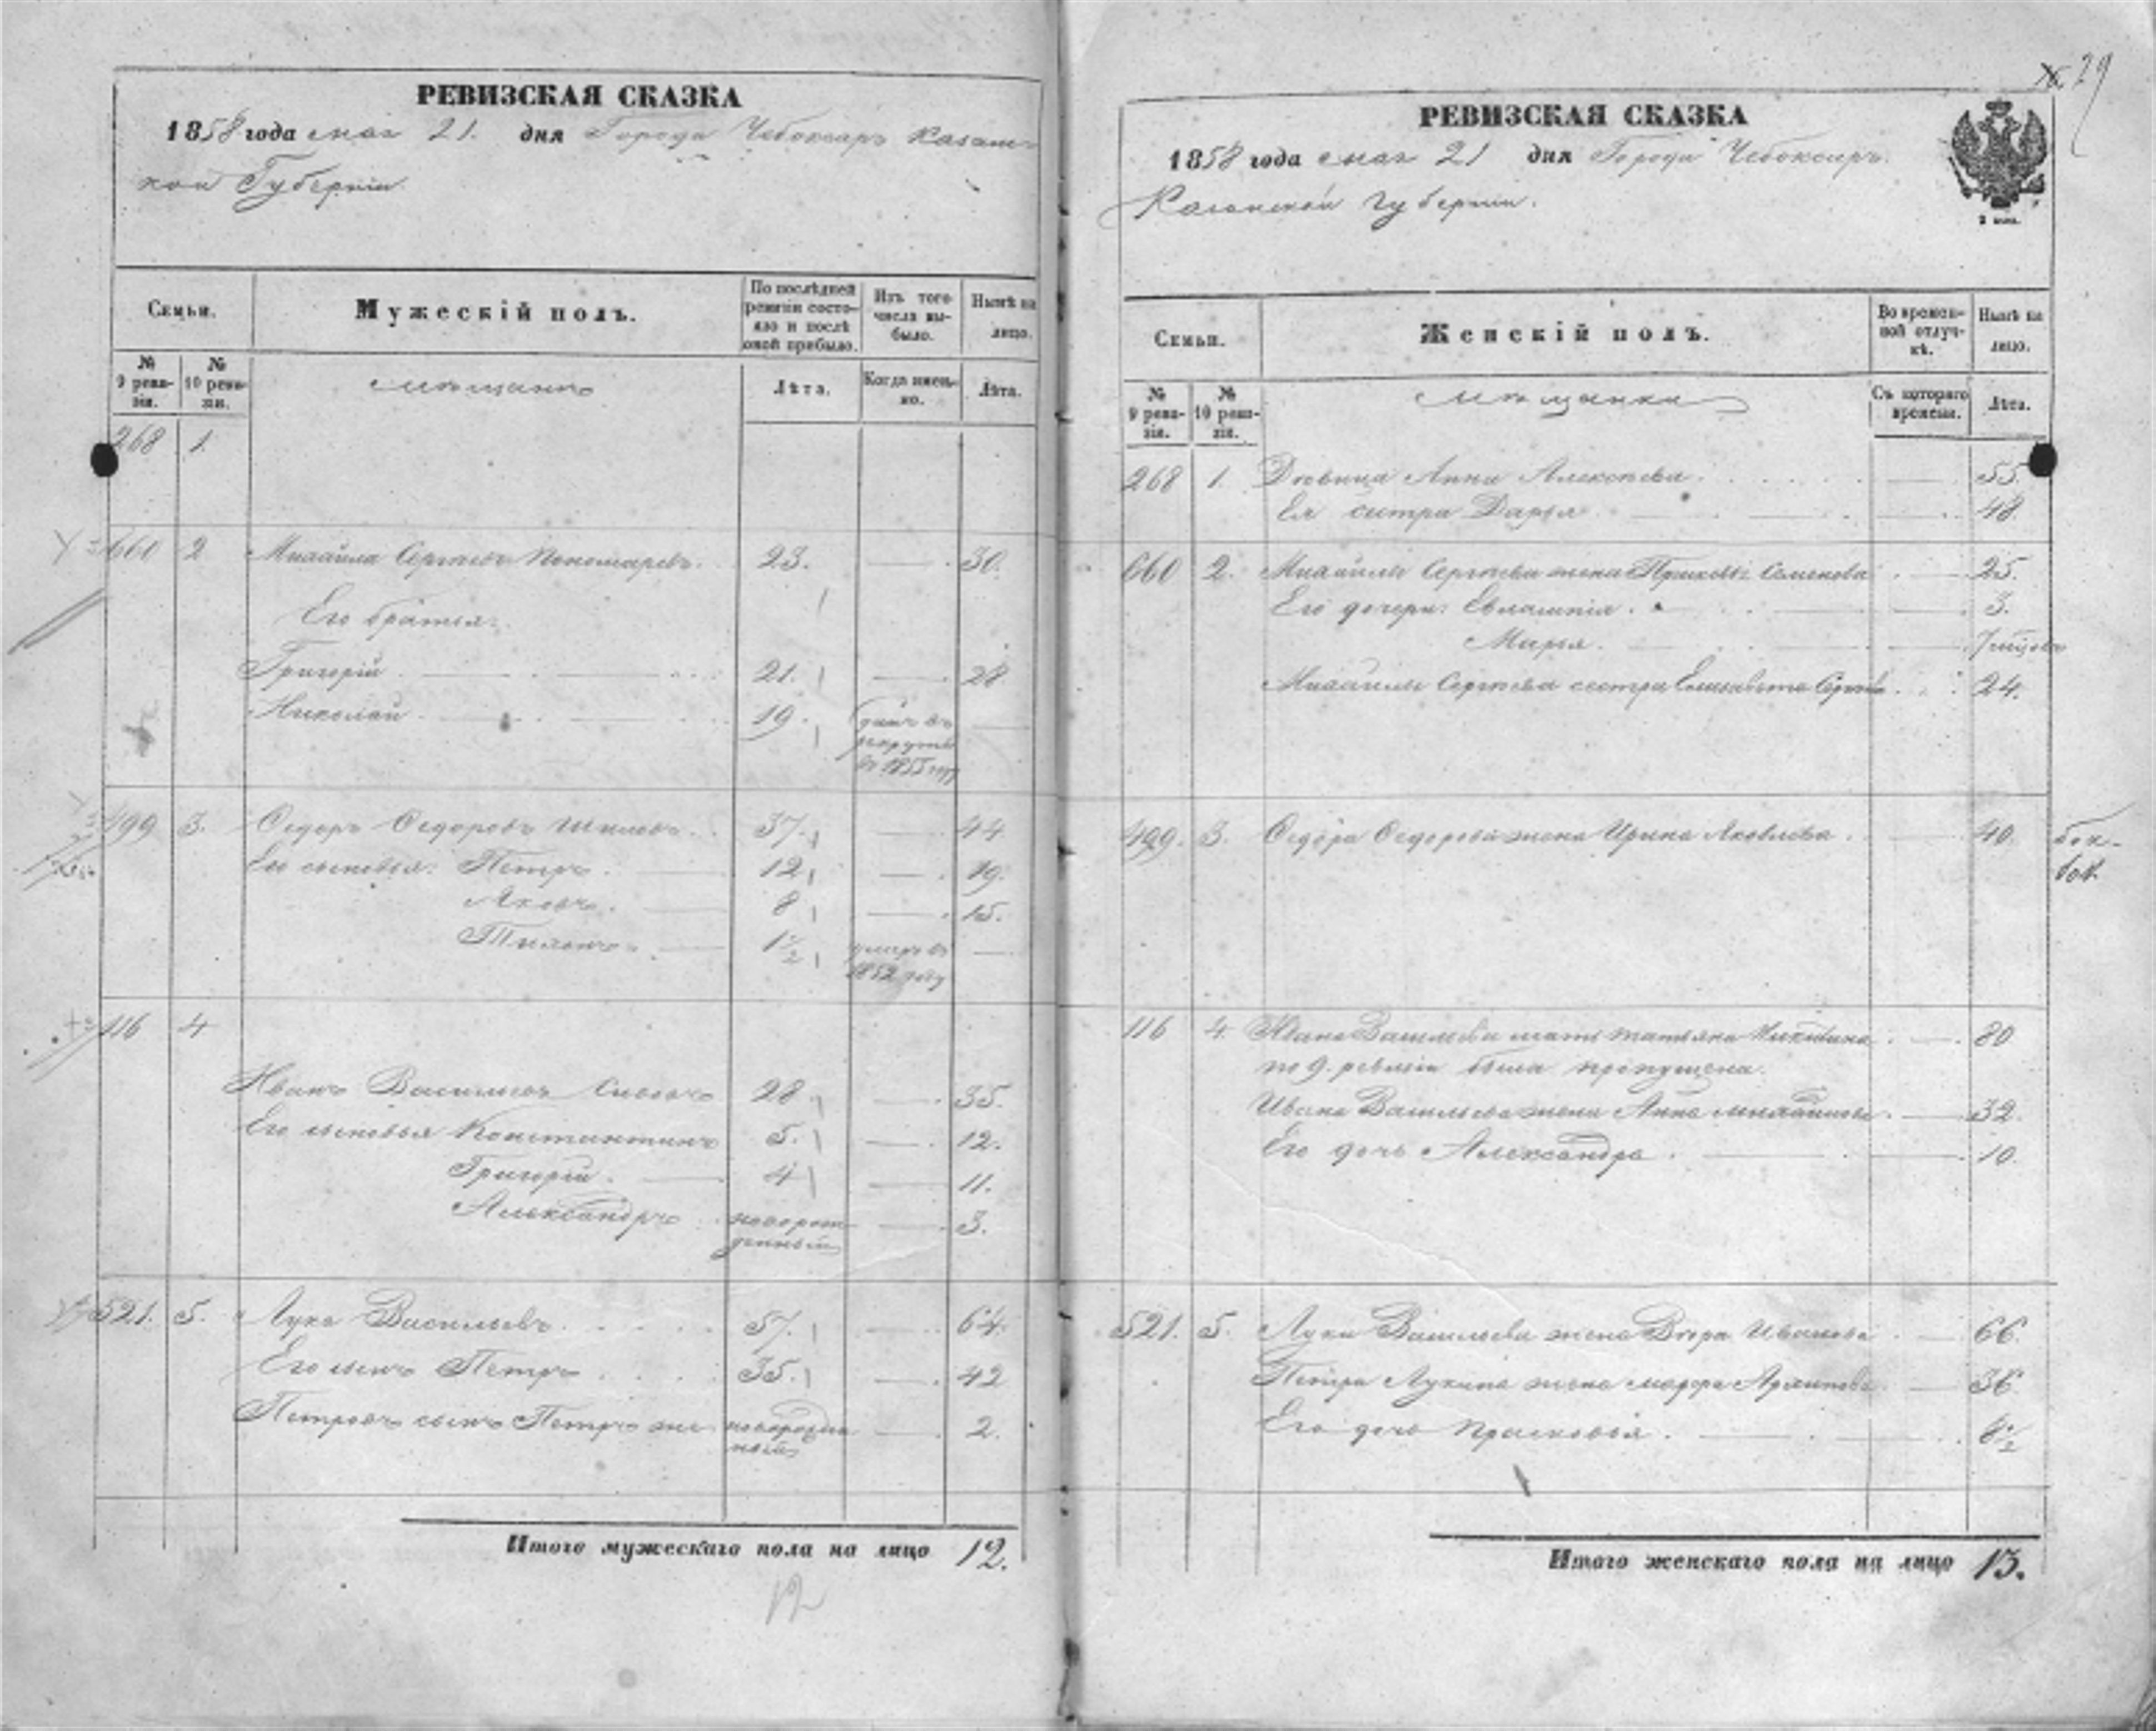 РЕВИЗСКАЯ СКАЗКА
1858 года мая 21. дня Города Чебоксаръ Казанс-
кой Губерніи
Семьи.
Мужескій полъ.
По послѣдней ревизіи состояло и послѣ оной прибыло.
Изъ того числа выбыло.
Нынѣ на лицо.
№ 9 ревизіи.
№ 10 ревизіи.
мѣщанъ
Лѣта.
Когда именно.
Лѣта.
268 1.
660 2 Михайла Сергѣевъ Пономаревъ. 23. 30.
Его братья:
Григорій 21. 28
Николай 19. данъ въ рекруты въ 1855 году
499 3. Ѳедоръ Ѳедоровъ 37. 44
Его сыновья: Петръ. 12 19.
Яковъ. 8 15.
1½ умеръ въ 1852 году
116 4
Иванъ Васильевъ 28 35.
Его сыновья Константинъ 5. 12.
Григорій. 4 11.
Александръ новорожденный 3.
521. 5. Лука Васильевъ 57. 64.
Его сынъ Петръ 35. 42
Петровъ сынъ Петръ же новорожденный 2.
Итого мужескаго пола на лицо 12.
12
29
РЕВИЗСКАЯ СКАЗКА
1858 года мая 21 дня Города Чебоксаръ.
Казанской губерніи.
Семьи.
Женскій полъ.
Во временной отлучкѣ.
Нынѣ на лицо.
№ 9 ревизіи.
№ 10 ревизіи.
мѣщанки
Съ котораго времени.
Лѣта.
268 1. Дѣвица Анна Алексѣева. 55.
Ея сестра Дарья 48.
660 2. Михайлы Сергѣева жена Семенова 25.
Его дочери: Евлампія. 3.
Марья. 7 мѣсяцовъ
Михайлы Сергѣева сестра Елизавета Сергѣева 24.
499. 3. Ѳедора Ѳедорова жена Ирина Яковлева. 40.
116 4. Ивана Васильева мать Татьяна Никитина 80
по 9. ревизіи была пропущена.
Ивана Васильева жена Анна Михайлова 32.
Его дочь Александра. 10.
521. 5. Луки Васильева жена Вѣра Иванова 66.
Петра Лукина жена 36
Его дочь Прасковья. 8½
Итого женскаго пола на лицо 13.